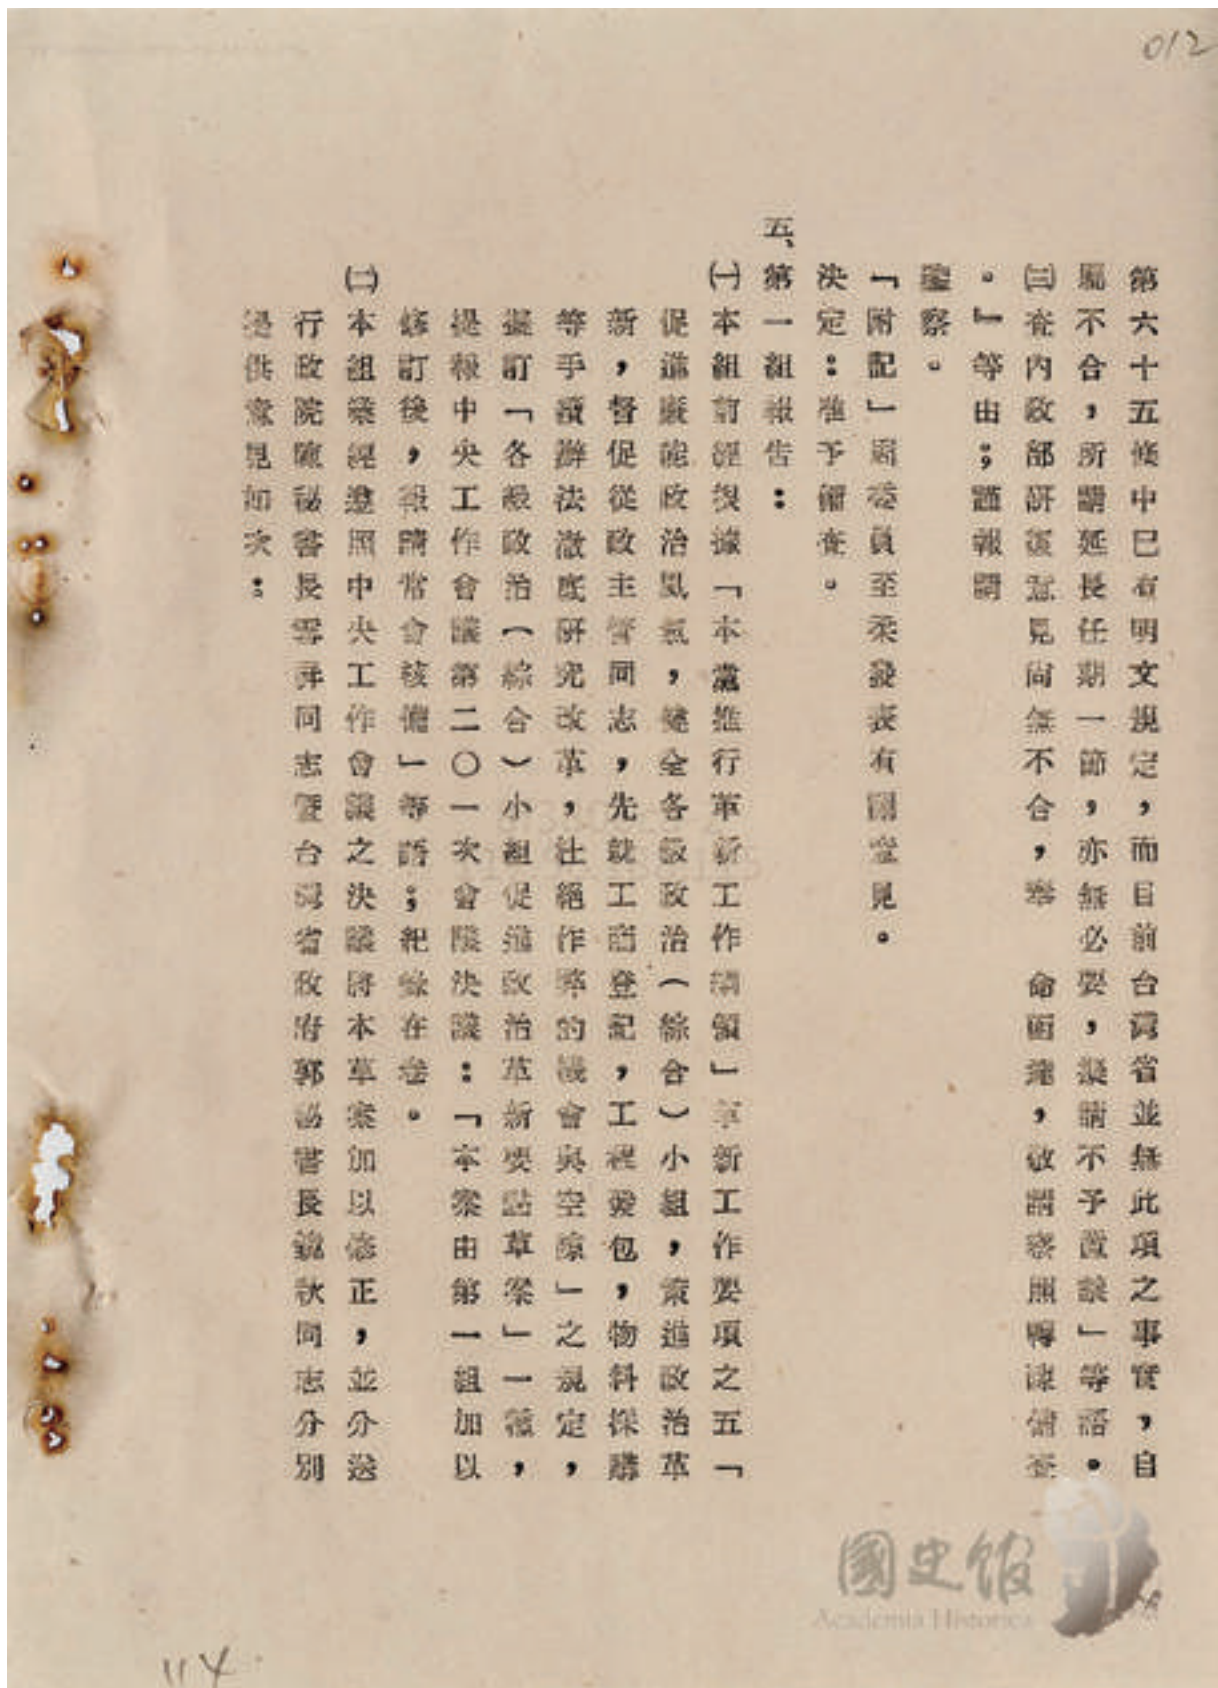 012
第六十五條中已有明文規定，而目前台灣省並無此項之事實，自
屬不合，所請延長任期一節，亦無必要，擬請不予置議」等語。
㈢查內政部研復意見尚無不合，奉　命函達，敬請察照轉陳備查
。』等由；謹報請
鑒察。
「附記」周委員至柔發表有關意見。
決定：准予備查。
五、第一組報告：
㈠本組前經根據「本黨推行革新工作綱領」革新工作要項之五「
促進廉能政治風氣，健全各級政治（綜合）小組，策進政治革
新，督促從政主管同志，先就工商登記，工程發包，物料採購
等手續辦法澈底研究改革，杜絕作弊的機會與空隙」之規定，
擬訂「各級政治（綜合）小組促進政治革新要點草案」一種，
提報中央工作會議第二〇一次會議決議：「本案由第一組加以
修訂後，報請常會核備」等語；紀錄在卷。
㈡本組業經遵照中央工作會議之決議將本草案加以修正，並分送
行政院陳秘書長雪屏同志暨台灣省政府郭秘書長鏡秋同志分別
提供意見如次：
國史館
Academia Historica
114